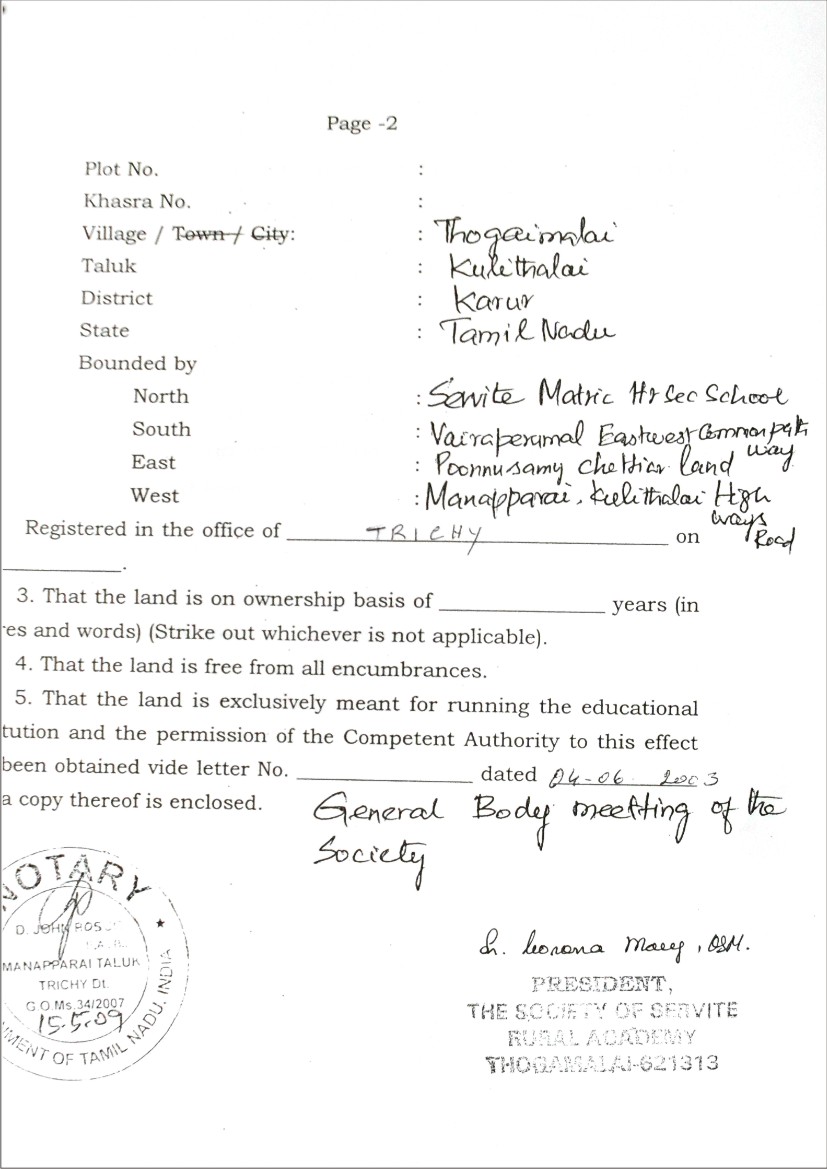 Page -2
Plot No. :
Khasra No. :
Village / Town / City: : Thogaimalai
Taluk : Kulithalai
District : Karur
State : Tamil Nadu
Bounded by
North : Servite Matric Hr Sec School
South : Vairaperumal Eastwest Common path way
East : Poonnusamy chettiar land
West : Manapparai. Kulithalai High ways Road
Registered in the office of TRICHY on
.
3. That the land is on ownership basis of years (in
es and words) (Strike out whichever is not applicable).
4. That the land is free from all encumbrances.
5. That the land is exclusively meant for running the educational
tution and the permission of the Competent Authority to this effect
been obtained vide letter No. dated 04-06 2003
a copy thereof is enclosed.
General Body meetting of the
Society
NOTARY
D. JOHN ROS
MANAPPARAI TALUK
TRICHY Dt.
G.O.Ms.34/2007
15.5.09
NMENT OF TAMIL NADU, INDIA
Mary, OSM.
PRESIDENT,
THE SOCIETY OF SERVITE
RURAL ACADEMY
THOGAMALAI-621313